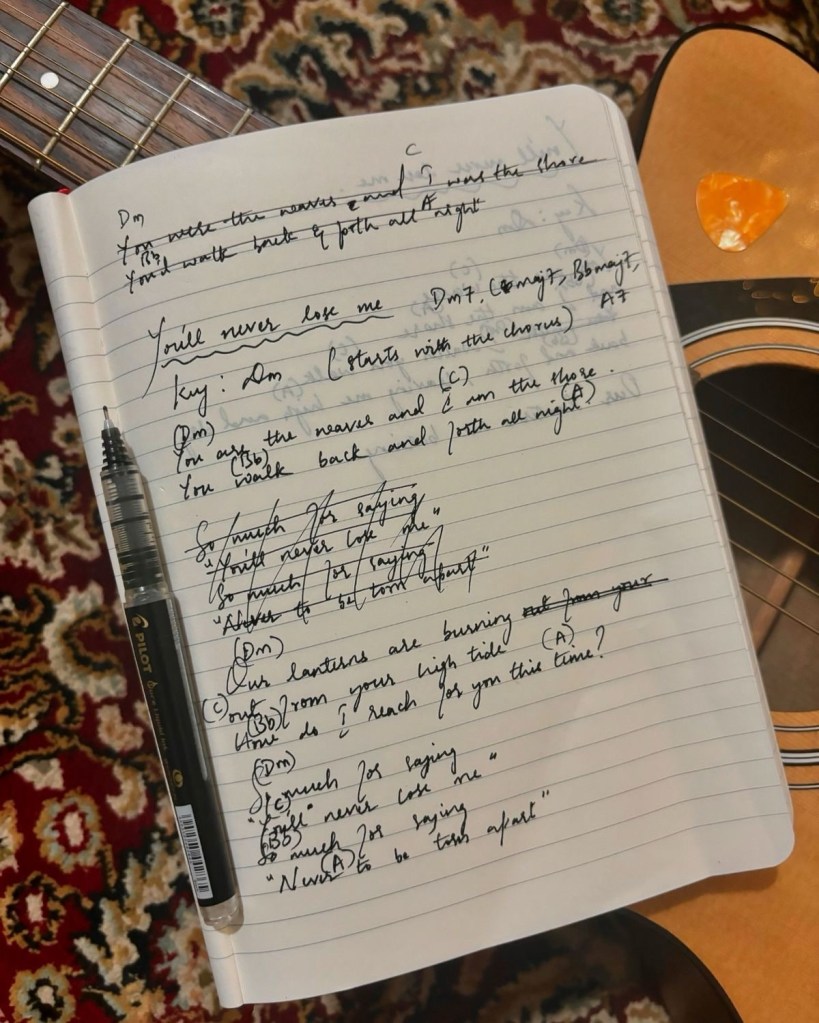 C
Dm
You were the waves and I was the shore
Bb A
You'd walk back & forth all night
You'll never lose me Dm7, Cmaj7, Bbmaj7, A7
Key: Dm (starts with the chorus)
(Dm) (C)
You are the waves and I am the shore.
(Bb) (A)
You walk back and forth all night
So much for saying
"You'll never lose me"
So much for saying
"Never to be torn apart"
(Dm)
Our lanterns are burning out from your
(C) out from your high tide (A)
(Bb)
How do I reach for you this time?
(Dm)
So much for saying
(C)
"You'll never lose me"
(Bb)
So much for saying
(A)
"Never to be torn apart"
PILOT